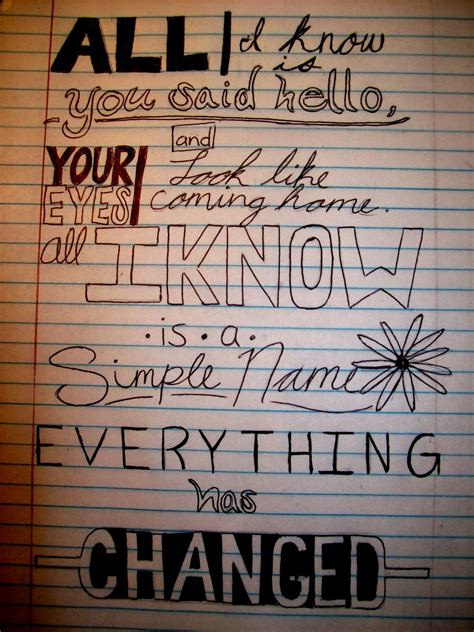 ALL I know
is
you said hello,
and
YOUR EYES Look like
coming home.
all I KNOW
is a
Simple Name
EVERYTHING
has
CHANGED